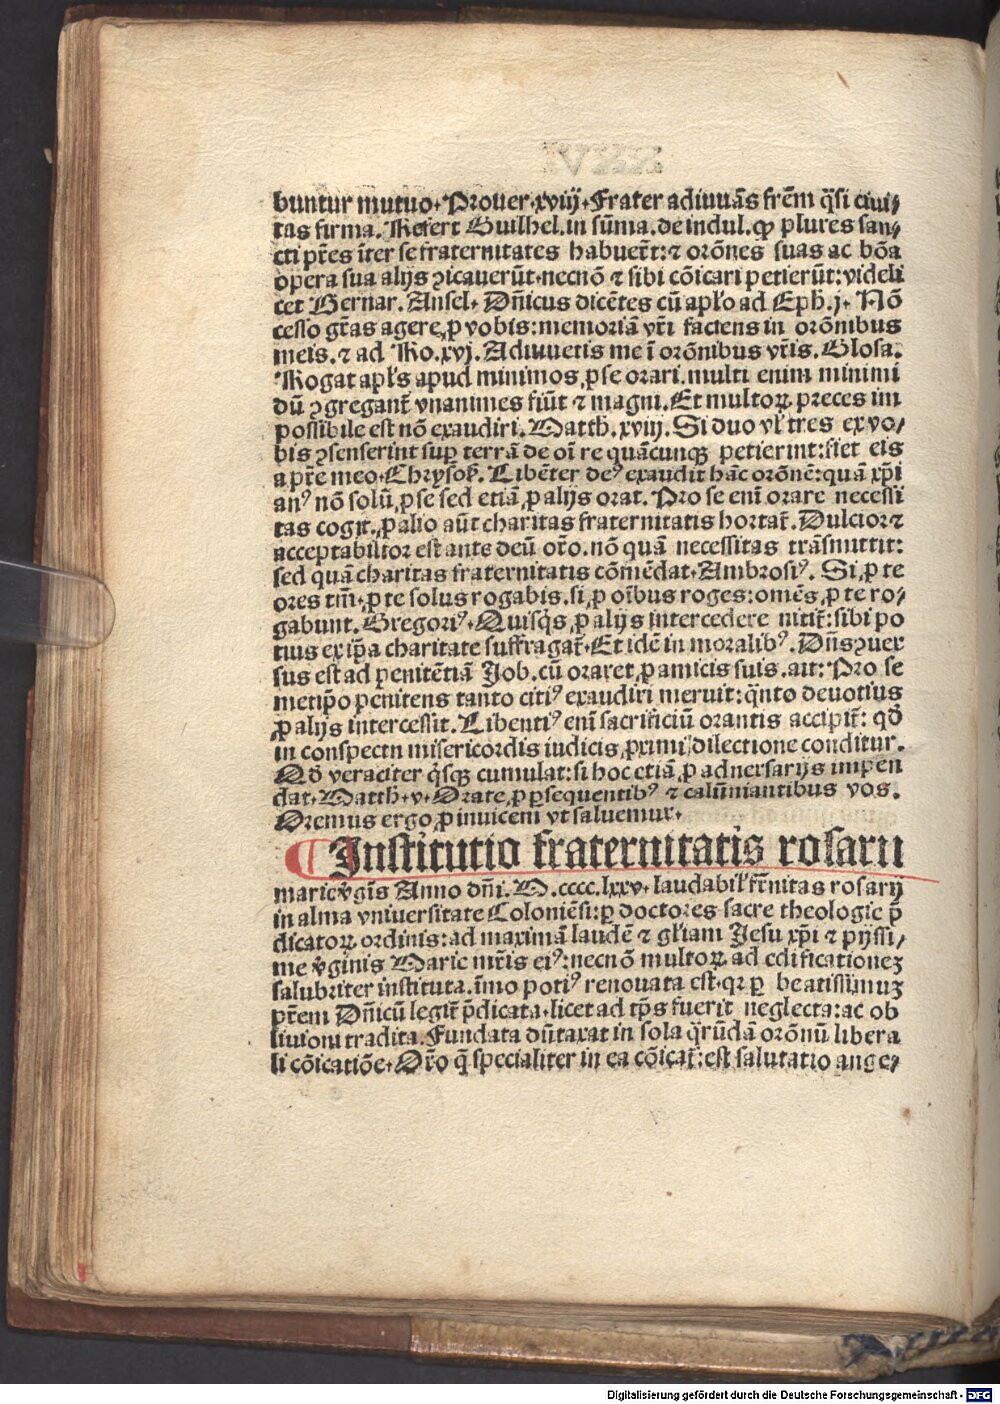 buntur mutuo. Prouer. xviij. Frater adiuuās frēm q̄si ciui⸗
tas firma. Refert Guilhel. in sūma. de indul. ꝙ plures san⸗
cti pr̄es īter se fraternitates habuer̄t: ⁊ orōnes suas ac bōa
opera sua alijs ꝯicauerūt. necnō ⁊ sibi cōicari petierūt: videli
cet Bernar. Ansel. Dn̄icus dicētes cū apl'o ad Eph. j. Nō
cesso gr̄as agere ꝓ vobis: memoriā vr̄i faciens in orōnibus
meis. ⁊ ad Ro. xvj. Adiuuetis me ī orōnibus vr̄is. Glosa.
Rogat apl's apud minimos ꝓ se orari. multi enim minimi
dū ꝯgregant̄ vnanimes fiūt ⁊ magni. Et multoꝝ preces im
possibile est nō exaudiri. Matth. xviij. Si duo vl' tres ex vo⸗
bis ꝯsenserint suꝑ terrā de oī re quācunqꝫ petierint: fiet eis
a pr̄e meo. Chrysoſ. Libēter deꝰ exaudit hāc orōnē: quā xp̄i
anꝰ nō solū ꝓ se sed etiā ꝓ alijs orat. Pro se enī orare necessi
tas cogit. ꝓ alio aūt charitas fraternitatis hortat̄. Dulcior ⁊
acceptabilior est ante deū or̄o. nō quā necessitas trāsmittit:
sed quā charitas fraternitatis cōmēdat. Ambrosiꝰ. Si ꝓ te
ores tm̄. ꝓ te solus rogabis. si ꝓ oībus roges: omēs ꝓ te ro⸗
gabunt. Gregoriꝰ. Quisq̄s ꝓ alijs intercedere nitit̄: sibi po
tius ex ip̄a charitate suffragat̄. Et idē in moralibꝰ. Dn̄s ꝯuer
sus est ad penitētiā Job. cū oraret ꝓ amicis suis. ait: Pro se
metip̄o penitens tanto citiꝰ exaudiri meruit: q̄nto deuotius
ꝓ alijs intercessit. Libentiꝰ enī sacrificiū orantis accipit̄: qd̄
in conspectu misericordis iudicis ꝓximi dilectione conditur.
Qd̄ veraciter q̄sqꝫ cumulat: si hoc etiā ꝓ aduersarijs impen
dat. Matth. v. Orate ꝓ ꝑsequentibꝰ ⁊ calūniantibus vos.
Oremus ergo ꝓ inuicem vt saluemur.
¶ Institutio fraternitatis rosarii
marie v̄gīs Anno dn̄i. M. cccc. lxxv. laudabil' fr̄nitas rosarij
in alma vniuersitate Coloniēsi: ꝑ doctores sacre theologie p̄
dicatoꝝ ordinis: ad maximā laudē ⁊ gl'iam Jesu xp̄i ⁊ pijssi⸗
me v̄ginis Marie mr̄is eiꝰ: necnō multoꝝ ad edificationeꝫ
salubriter instituta. īmo potiꝰ renouata est. qꝛ ꝑ beatissimuꝫ
pr̄em Dn̄icū legit̄ p̄dicata. licet ad tp̄s fuerit neglecta: ac ob
liuioni tradita. Fundata dūtaxat in sola q̄rūdā orōnū libera
li cōicatiōe. Or̄o q̄ specialiter in ea cōicat̄: est salutatio ange⸗
Digitalisierung gefördert durch die Deutsche Forschungsgemeinschaft - DFG